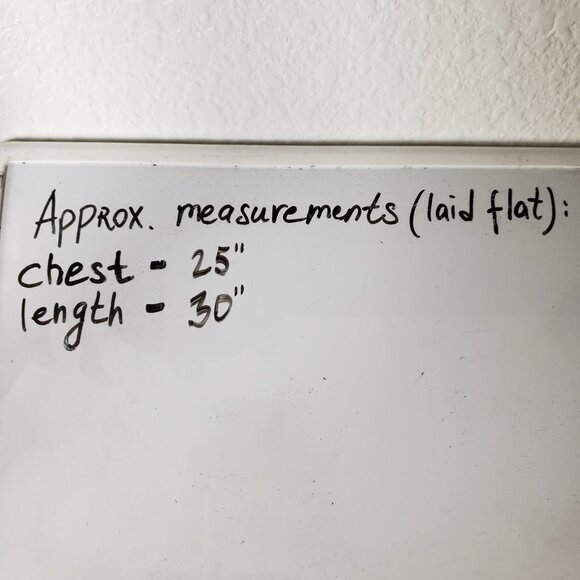 Approx. measurements (laid flat):
chest - 25"
length - 30"